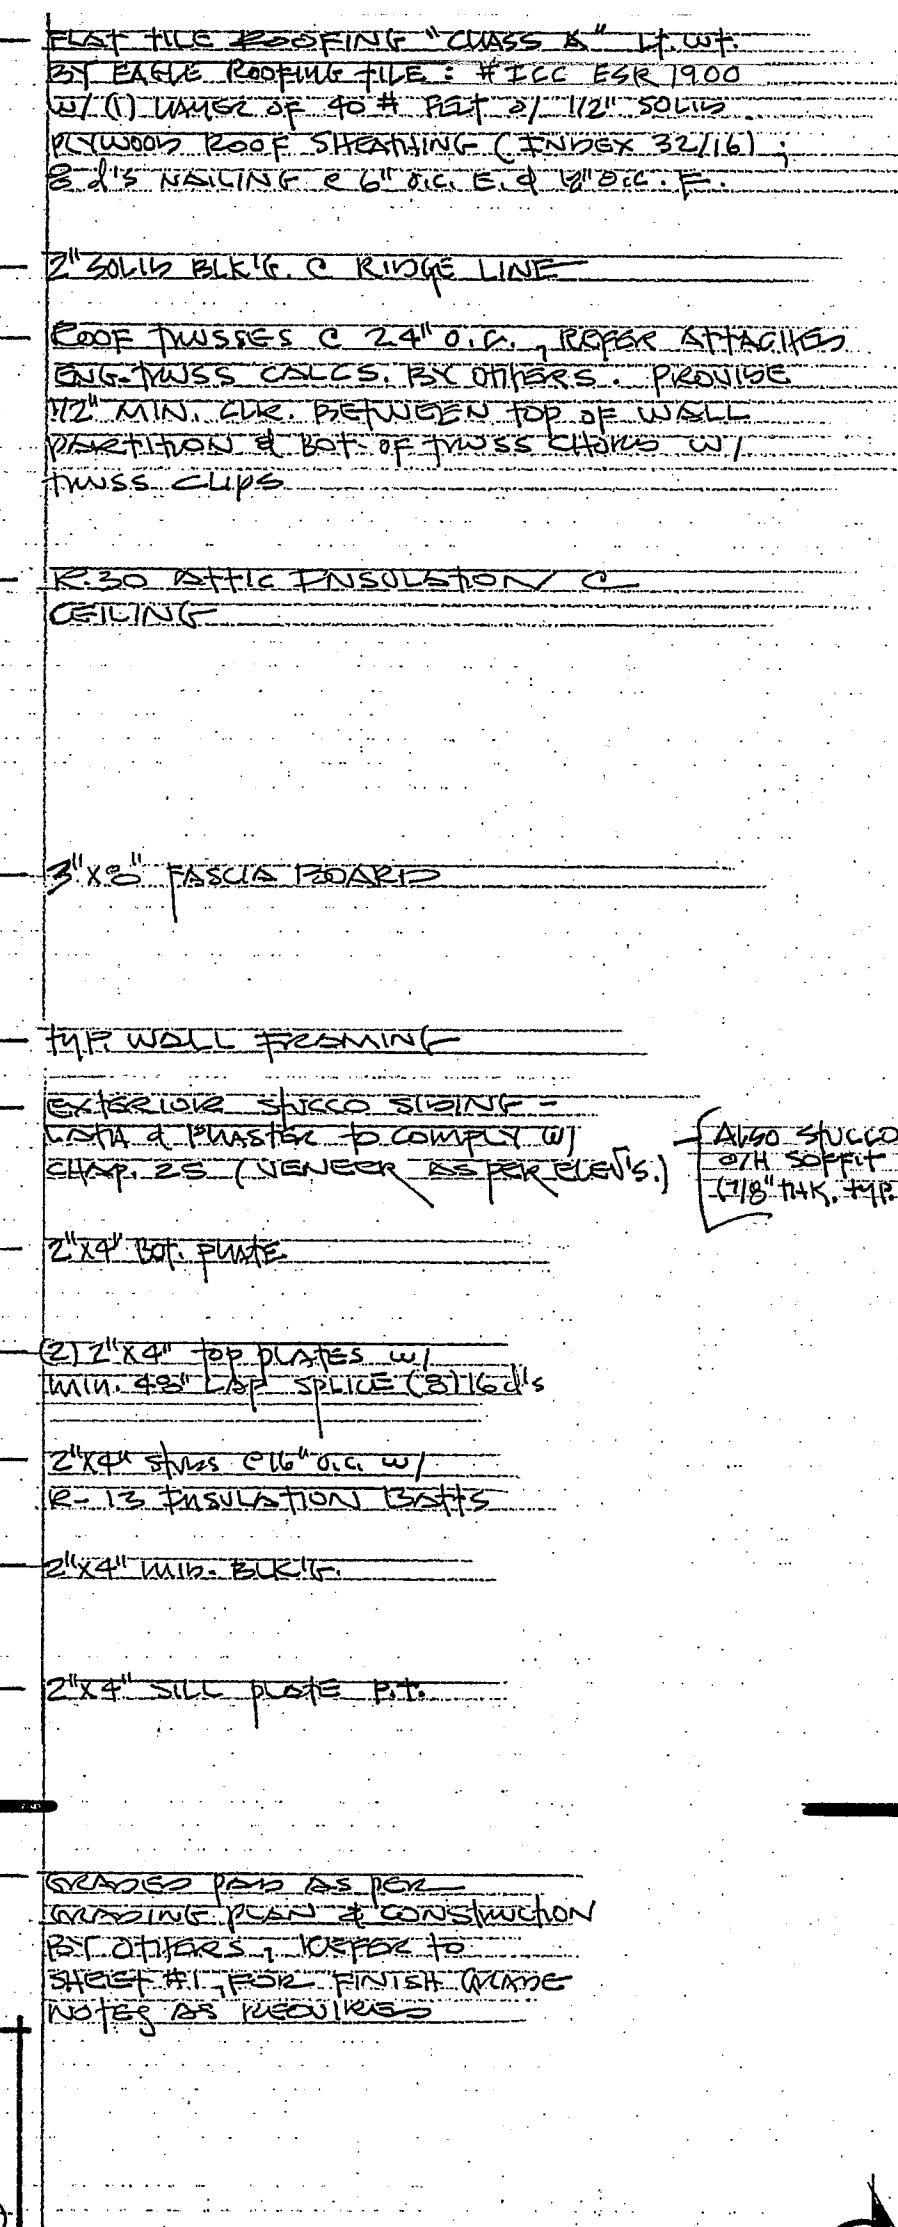 FLAT TILE ROOFING "CLASS A" LT. WT.
BY EAGLE ROOFING TILE : # ICC ESR 1900
W/ (1) LAYER OF 40 # FELT O/ 1/2" SOLID
PLYWOOD ROOF SHEATHING (INDEX 32/16) ;
8 d's NAILING @ 6" O.C. E. & 12" O.C. F.
2" SOLID BLK'G. @ RIDGE LINE
ROOF TRUSSES @ 24" O.C., REFER ATTACHED
ENG. TRUSS CALCS. BY OTHERS. PROVIDE
1/2" MIN. CLR. BETWEEN TOP OF WALL
PARTITION & BOT. OF TRUSS CHORD W/
TRUSS CLIPS
R-30 ATTIC INSULATION @
CEILING
3"X8" FASCIA BOARD
TYP. WALL FRAMING
EXTERIOR STUCCO SIDING =
LATH & PLASTER TO COMPLY W/
CHAP. 25 (VENEER AS PER ELEV'S.)
ALSO STUCCO
O/H SOFFIT
(7/8" THK. TYP.
2"X4" BOT. PLATE
(2) 2"X4" TOP PLATES W/
MIN. 48" LAP SPLICE (8) 16 d's
2"X4" STUDS @ 16" O.C. W/
R-13 INSULATION BATTS
2"X4" MID. BLK'G.
2"X4" SILL PLATE P.T.
GRADED PAD AS PER
GRADING PLAN & CONSTRUCTION
BY OTHERS, REFER TO
SHEET #1, FOR FINISH GRADE
NOTES AS REQUIRED